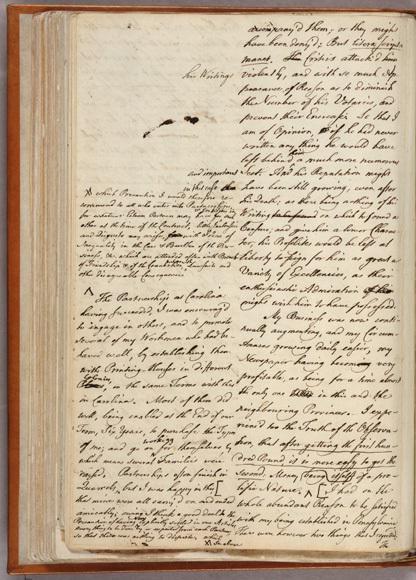 accompany'd them; or they might
have been deny'd; But litera scripta
manet. The Critics attack'd him
violently, and with so much Ap-
pearance of Reason as to diminish
the Number of his Votaries, and
prevent their Encrease. So that I
am of Opinion, if he had never
written any thing he would have
left behind him a much more numerous
and important
Sect. And his Reputation might
in that case
have been still growing, even after
his Death; as there being nothing of his
Writing on which to found a
Censure; and give him a lower Charac-
ter, his Proselites would be left at
Liberty to feign for him as great a
Variety of Excellencies, as their
enthusiastic Admiration
might wish him to have possessed.
My Business was now conti-
nually augmenting, and my Circum-
stances growing daily easier, my
Newspaper having become very
profitable, as being for a time almost
the only one in this and the
neighbouring Provinces. I expe-
rienc'd too the Truth of the Observa-
tion, that after getting the first hun-
dred Pound, it is more easy to get the
Second: Money itself being of a pro-
lific Nature;
I had on the
whole abundant Reason to be satisfied
with my being established in Pennsylvania
There were however two things that I regretted
his Writings
which Precaution I would therefore re-
commend to all who enter into Partnerships,
for whatever Esteem Partners may have for each
other at the time of the Contract, little Jealousies
and Disgusts may arise, with Ideas of
Inequality in the Care & Burthen of the Bu-
siness, &c. which are attended often with Breach
of Friendship & of the Connection, perhaps with Lawsuits and
other disagreable Consequences.
The Partnership at Carolina
having succeeded, I was encourag'd
to engage in others, and to promote
several of my Workmen who had be-
haved well, by establishing them
with Printing-Houses in different
Colonies, on the same Terms with that
in Carolina. Most of them did
well, being enabled at the End of our
Term, Six Years, to purchase the Types
of me; and go on working for themselves, by
which means several Families were
raised. Partnerships often finish in
Quarrels, but I was happy in this,
that mine were all carry'd on and ended
amicably; owing I think a good deal to the
Precaution of having very explicitly settled in our Articles
every thing to be done by or expected from each Partner,
so that there was nothing to dispute, which